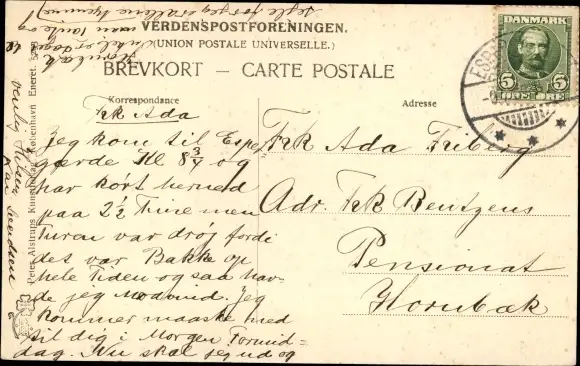 VERDENSPOSTFORENINGEN.
(UNION POSTALE UNIVERSELLE.)
BREVKORT — CARTE POSTALE
Korrespondance
Adresse
DANMARK
5 5
ØRE ØRE
Frk Ada
Jeg kom til Esper
gærde Kl 8 3/4 og
har kørt herned
paa 2½ Time men
Turen var drøj fordi
det var Bakke op
hele Tiden og saa hav-
de jeg Modvind. Jeg
kommer maaske med
til dig i Morgen Formid-
dag. Nu skal jeg ud og
sejle
Hornbæk
venlig Hilsen
Frk Ada Friberg
Adr. Frk Bentzens
Pensionat
Hornbæk
Peter Alstrups Kunstforlag København Eneret.